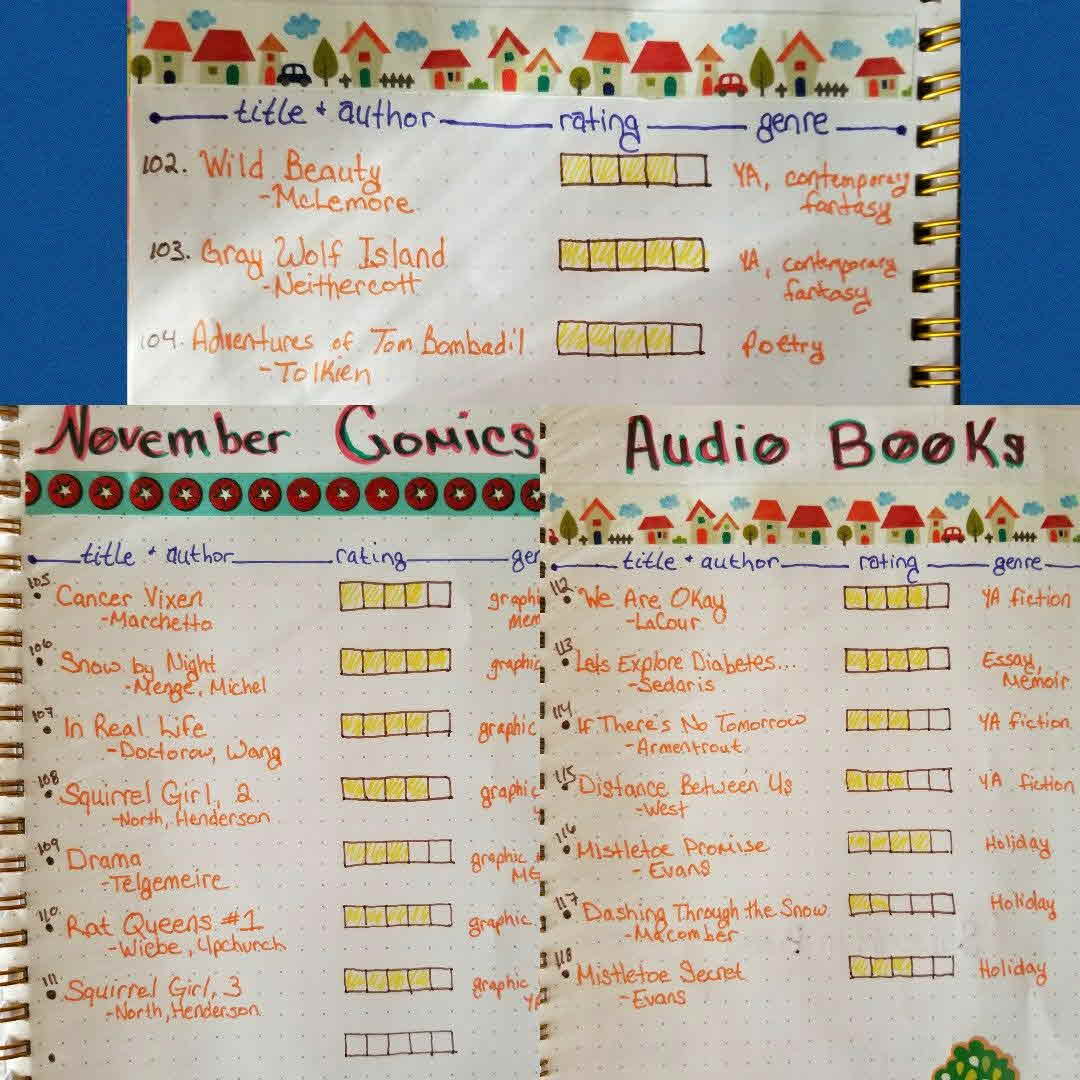 title + author rating genre
102. Wild Beauty YA, contemporary
-McLemore fantasy
103. Gray Wolf Island YA, contemporary
-Neithercott fantasy
104. Adventures of Tom Bombadil Poetry
-Tolkien
November Comics
title + author rating gen
105 Cancer Vixen graphi
-Marchetto mem
106 Snow by Night graphic
-Menge, Michel
107 In Real Life graphic
-Doctorow, Wang
108 Squirrel Girl, 2 graphic
-North, Henderson
109 Drama graphic
-Telgemeire MG
110 Rat Queens #1 graphic
-Wiebe, Upchurch
111 Squirrel Girl, 3 graphic
-North, Henderson
Audio Books
title + author rating genre
112 We Are Okay YA fiction
-LaCour
113 Lets Explore Diabetes... Essay,
-Sedaris Memoir
114 If There's No Tomorrow YA fiction
-Armentrout
115 Distance Between Us YA fiction
-West
116 Mistletoe Promise Holiday
- Evans
117 Dashing Through the Snow Holiday
-Macomber
118 Mistletoe Secret Holiday
-Evans